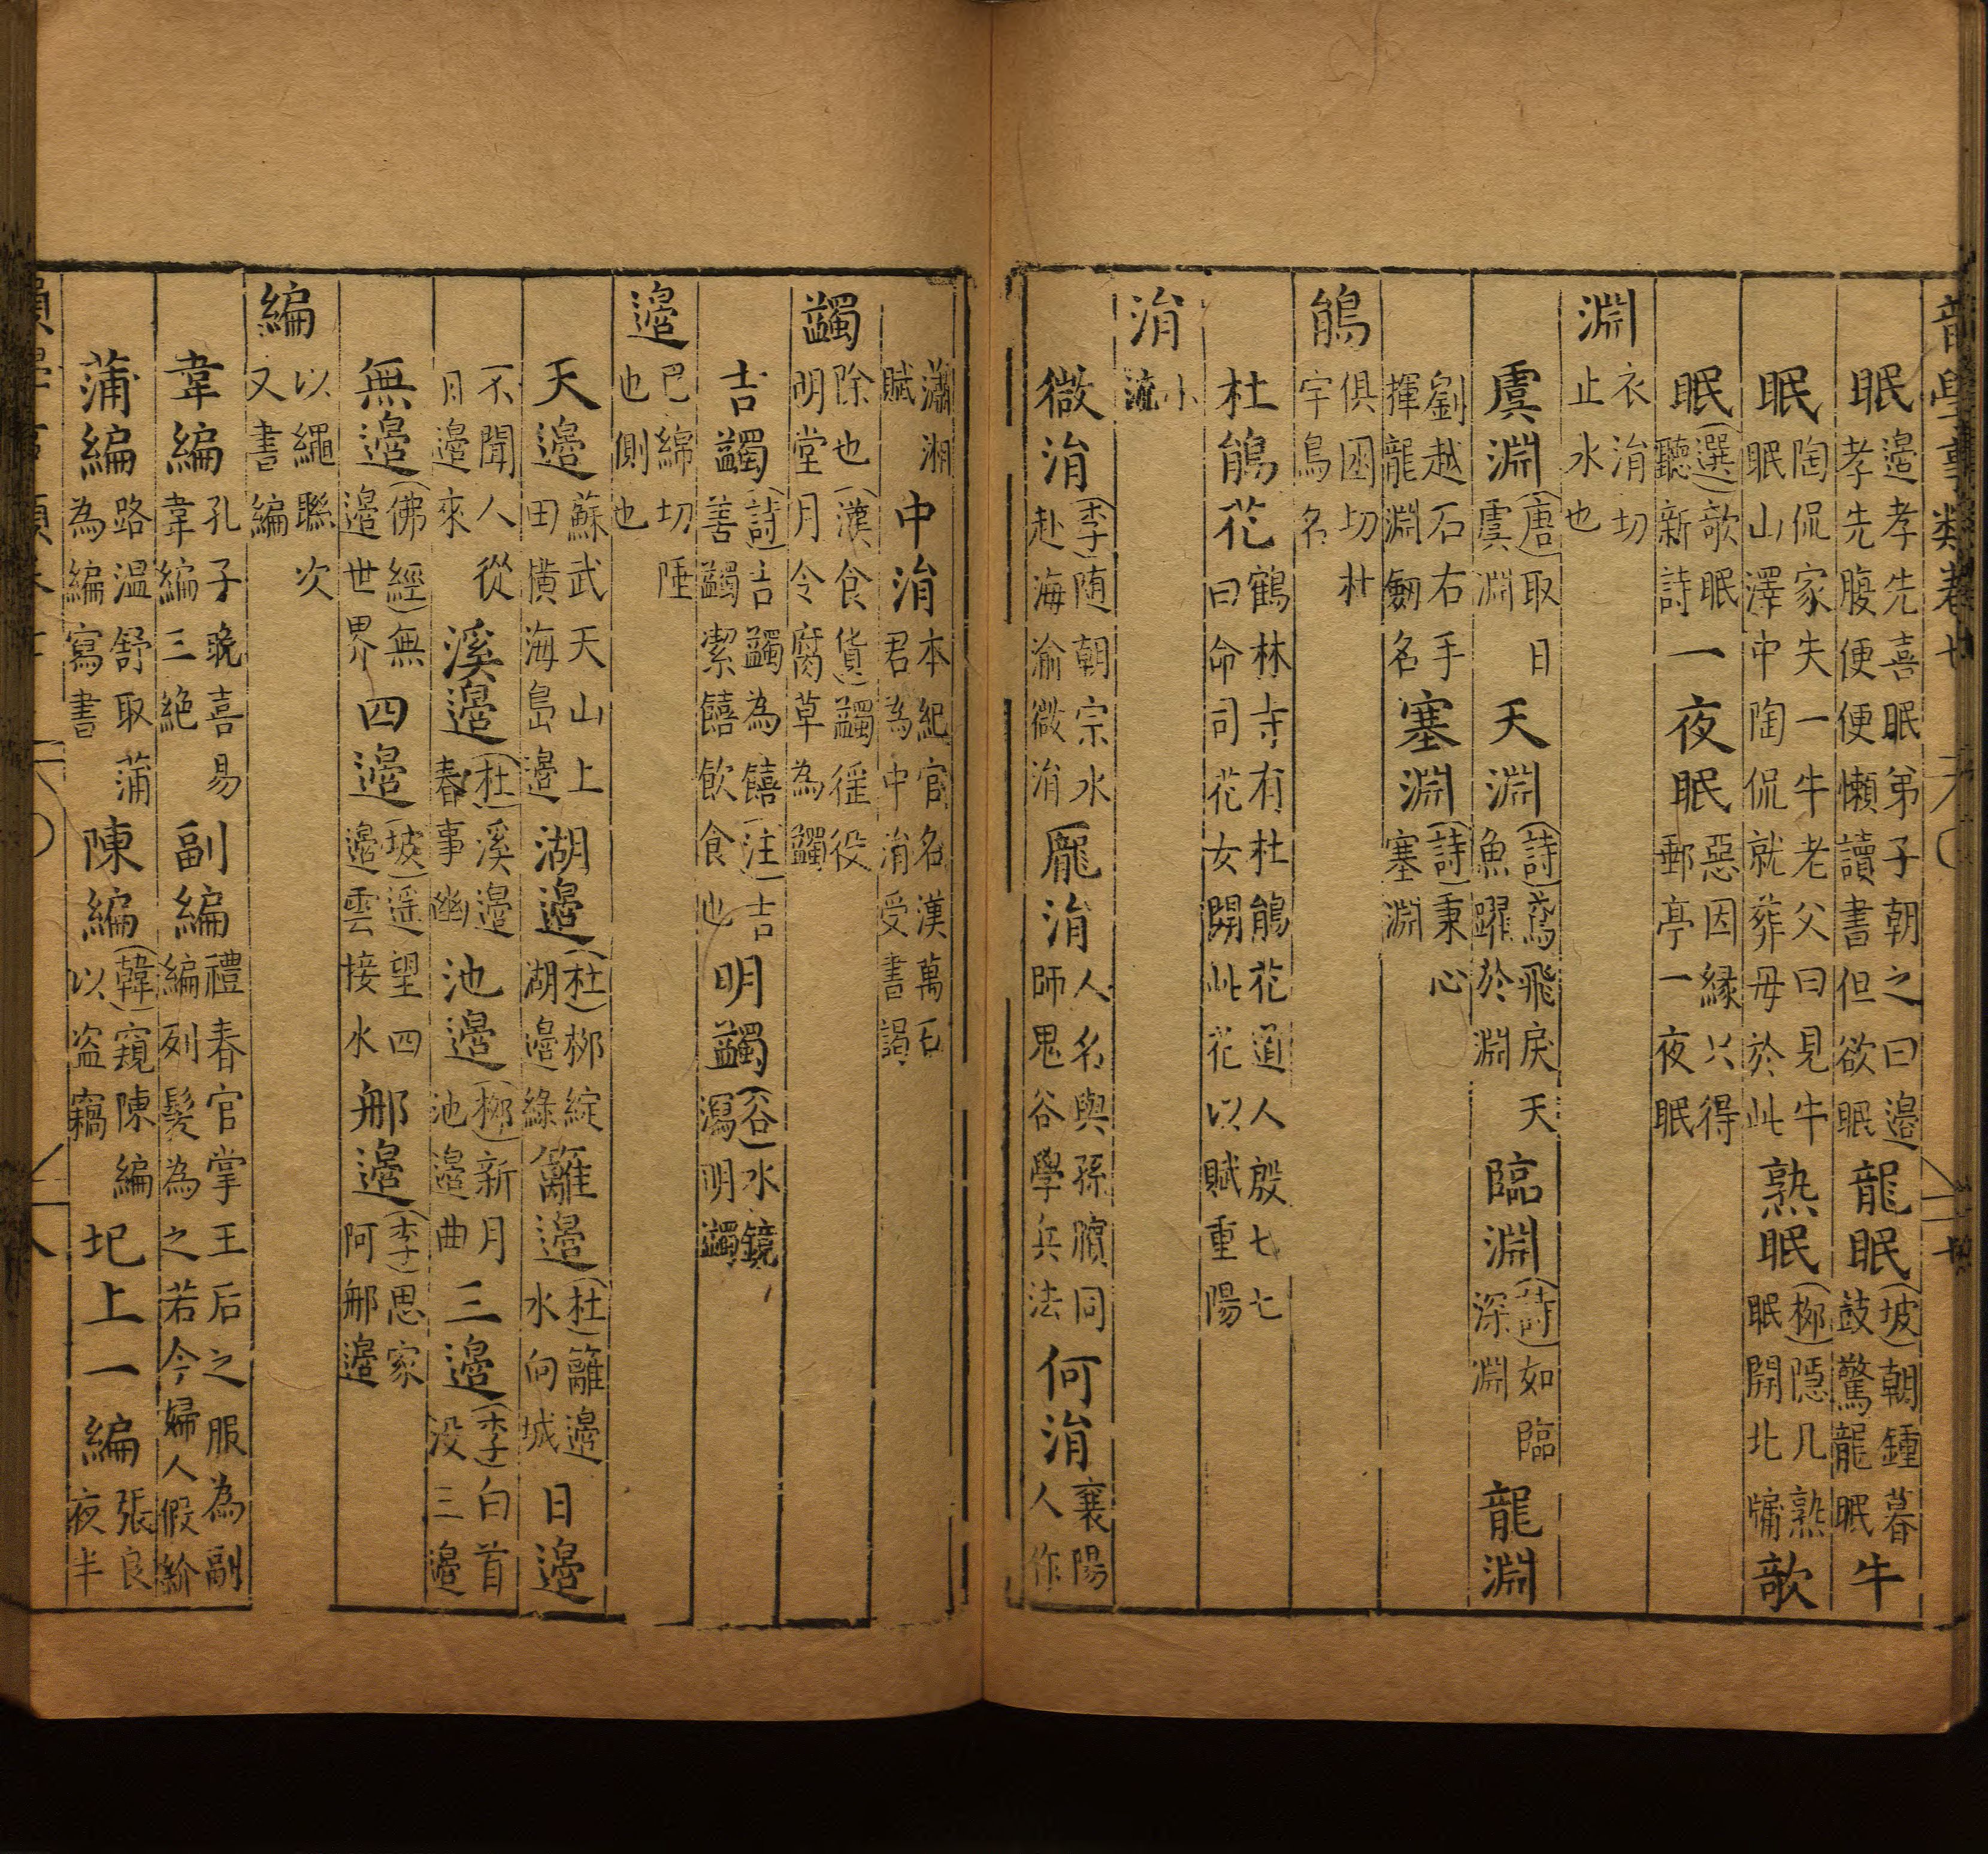 韻學事類卷七
眠邉孝先喜眠弟子朝之曰邉孝先腹便便懶讀書但欲眠龍眠(坡)朝鍾暮鼓驚龍眠牛
眠陶侃家失一牛老父曰見牛眠山澤中陶侃就葬毋於此熟眠(柳)隱几熟眠開北牖歌
眠(選)歌眠聽新詩一夜眠惡因緣只得郵亭一夜眠
淵衣涓切止水也
虞淵(唐)取日虞淵天淵(詩)鳶飛戾天魚躍於淵臨淵(詩)如臨深淵龍淵
劉越石右手揮龍淵劒名塞淵(詩)秉心塞淵
鵑俱困切杜宇鳥名
杜鵑花鶴林寺有杜鵑花道人殷七七曰命司花女開此花以賦重陽
涓小流
微涓(李)随朝宗水赴海渝微涓龐涓人名與孫臏同師鬼谷學兵法何涓襄陽人作
瀟湘賦中涓本紀官名漢萬石君為中涓受書謁
蠲除也(漢食貨)蠲徭役明堂月令腐草為蠲
吉蠲(詩)吉蠲為饎(注)吉善蠲潔饎飲食也明蠲(谷)水鏡瀉明蠲
邉巴綿切陲也側也
天邉蘇武天山上田横海島邉湖邉(杜)柳綻湖邉綠籬邉(杜)籬邉水向城日邉
不聞人從日邉來溪邉(杜)溪邉春事幽池邉(柳)新月池邉曲三邉(李)白首没三邉
無邉(佛經)無邉世界四邉(坡)遥望四邉雲接水那邉(李)思家阿那邉
編以繩聯次又書編
韋編孔子晚喜易韋編三絶副編禮春官掌王后之服為副編編列髮為之若今婦人假紒
蒲編路温舒取蒲為編寫書陳編(韓)窺陳編以盗竊圯上一編張良夜半